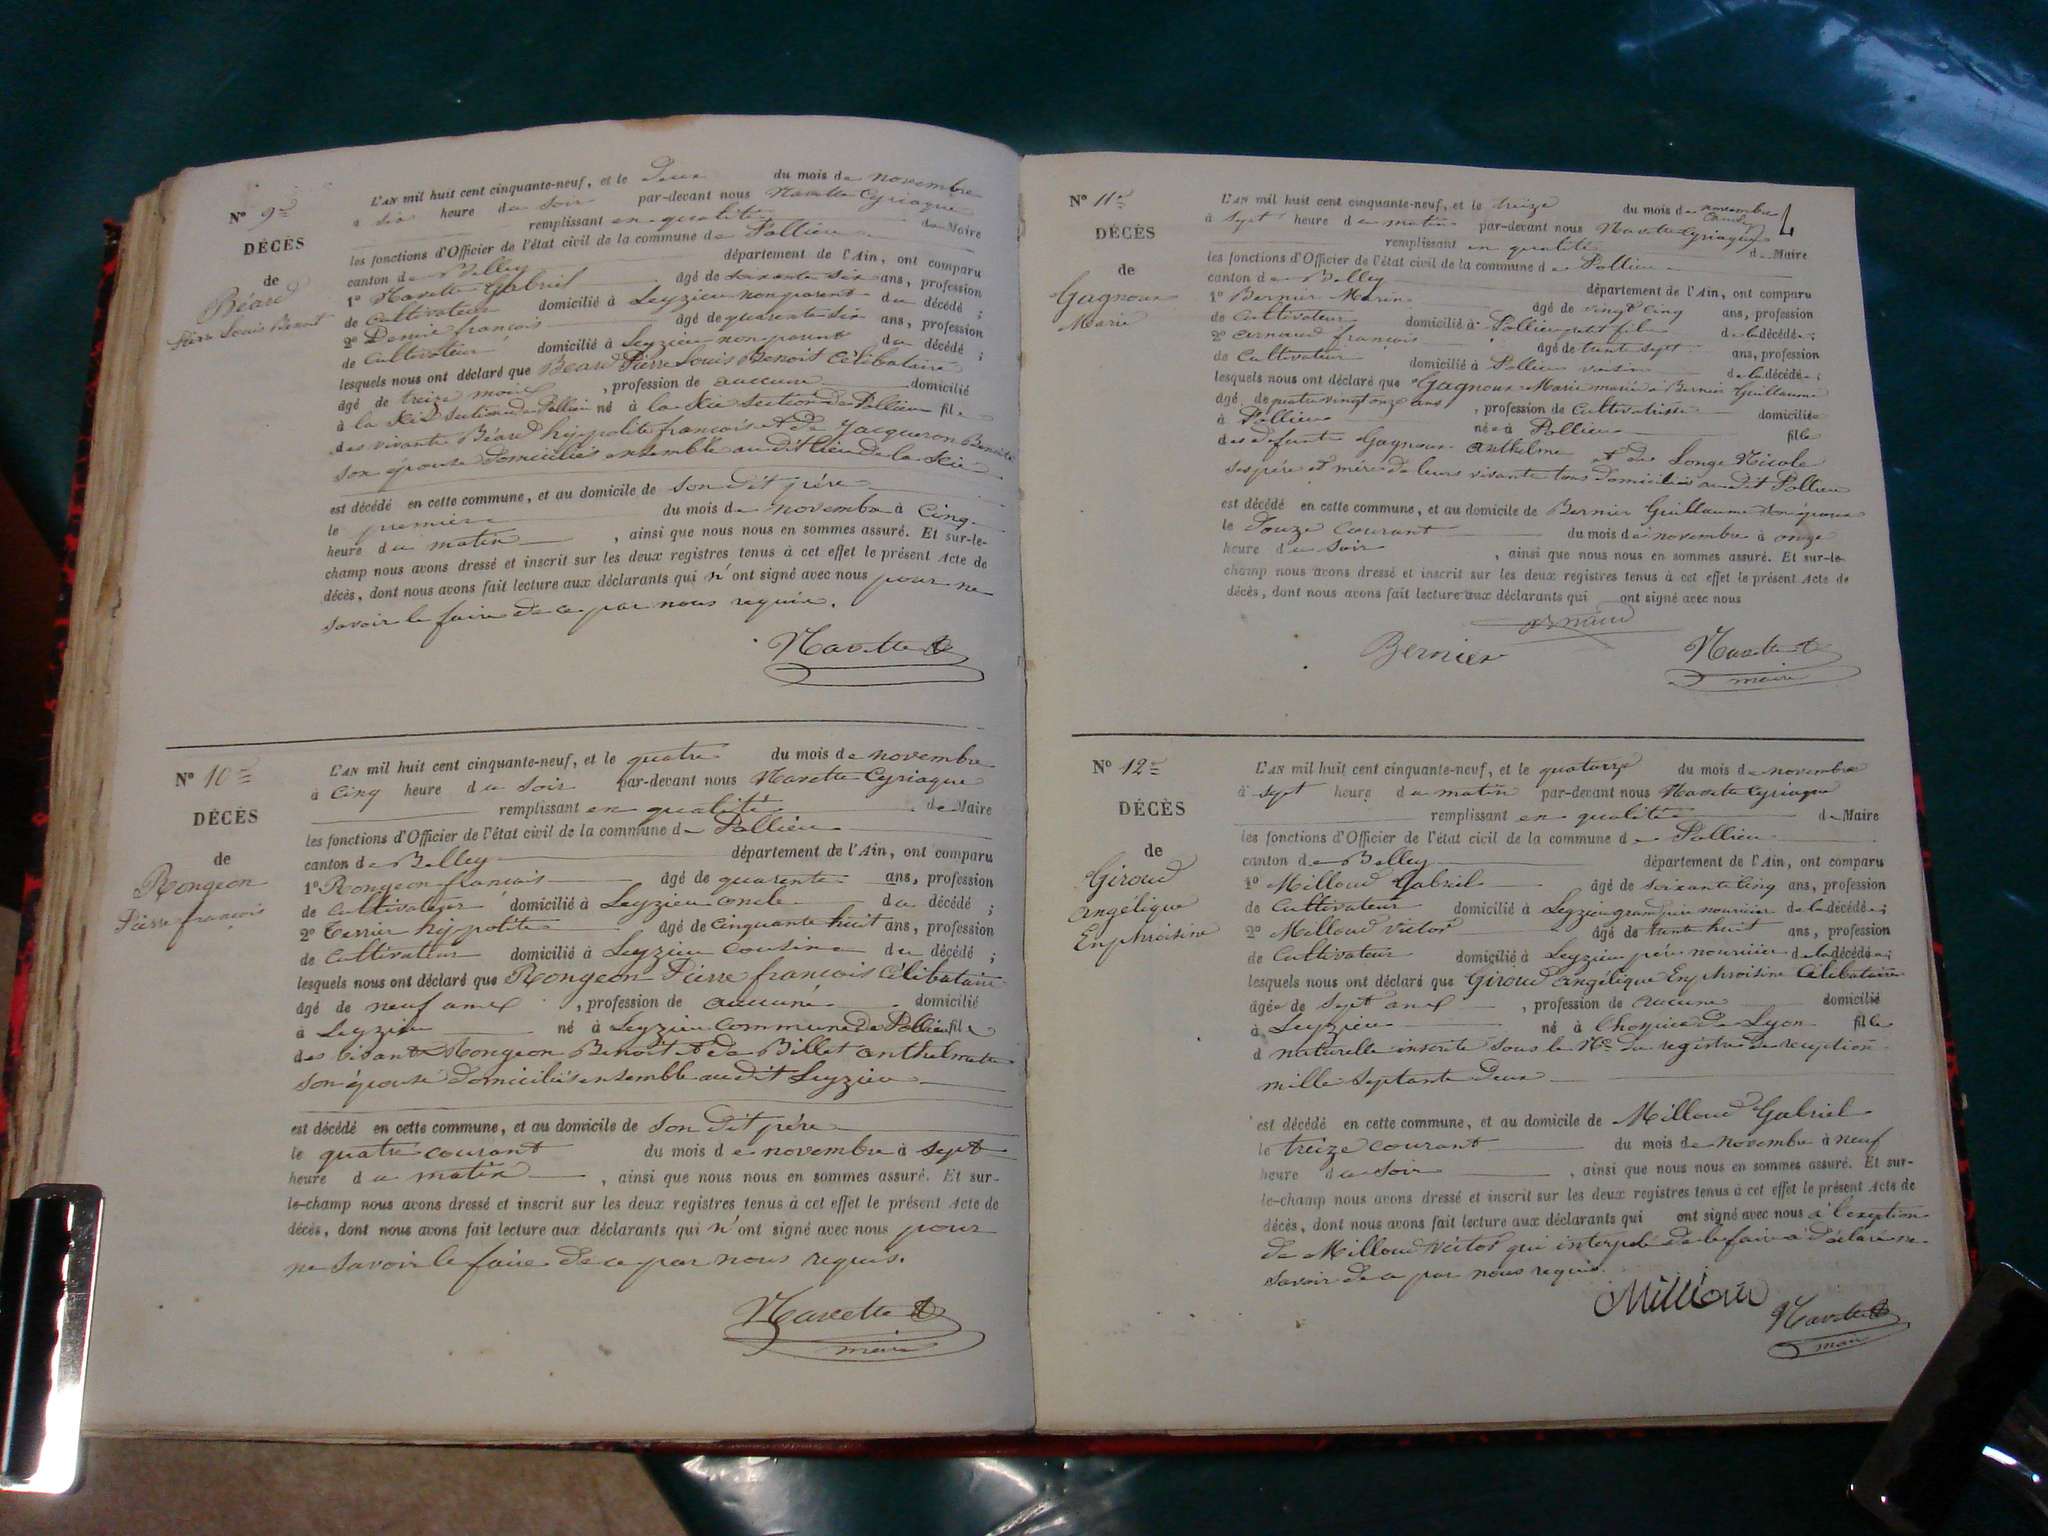 N° 9e
DÉCÈS
de
Béard
Pierre Louis Benoit
L'AN mil huit cent cinquante-neuf, et le deux du mois de novembre
à six heure du soir par-devant nous Navette Cyriaque
remplissant en qualité de Maire
les fonctions d'Officier de l'état civil de la commune de Pollieu
canton de Belley département de l'Ain, ont comparu
1° Navette Gabriel âgé de soixante six ans, profession
de Cultivateur domicilié à Leyzieu non parent du décédé ;
2° françois âgé de quarente six ans, profession
de Cultivateur domicilié à Leyzieu non parent du décédé ;
lesquels nous ont déclaré que Béard Pierre Louis Benoit Célibataire
âgé de treize mois, profession de aucune domicilié
à la section de Pollieu né à la section de Pollieu fils
des vivants Béard hypolite françois et de Jacqueron Benoite
son épouse domiciliés ensemble au dit lieu de la
est décédé en cette commune, et au domicile de son dit père
le premier du mois de novembre à cinq
heure du matin, ainsi que nous nous en sommes assuré. Et sur-le-
champ nous avons dressé et inscrit sur les deux registres tenus à cet effet le présent Acte de
décès, dont nous avons fait lecture aux déclarants qui n'ont signé avec nous pour ne
savoir le faire de ce par nous requis.
Navette
N° 10e
DÉCÈS
de
Rongeon
Pierre françois
L'AN mil huit cent cinquante-neuf, et le quatre du mois de novembre
à cinq heure du soir par-devant nous Navette Cyriaque
remplissant en qualité de Maire
les fonctions d'Officier de l'état civil de la commune de Pollieu
canton de Belley département de l'Ain, ont comparu
1° Rongeon francois âgé de quarente ans, profession
de Cultivateur domicilié à Leyzieu oncle du décédé ;
2° Terrier hypolite âgé de cinquante huit ans, profession
de Cultivateur domicilié à Leyzieu Cousin du décédé ;
lesquels nous ont déclaré que Rongeon Pierre francois Célibataire
âgé de neuf ans, profession de aucune domicilié
à Leyzieu né à Leyzieu commune de Pollieu fils
des vivant Rongeon Benoit et de Billet
son épouse domiciliés ensemble au dit Leyzieu
est décédé en cette commune, et au domicile de son dit père
le quatre courant du mois de novembre à sept
heure du matin, ainsi que nous nous en sommes assuré. Et sur-
le-champ nous avons dressé et inscrit sur les deux registres tenus à cet effet le présent Acte de
décès, dont nous avons fait lecture aux déclarants qui n'ont signé avec nous pour
ne savoir le faire de ce par nous requis.
Navette
maire
N° 11e
DÉCÈS
de
Gagnoux
Marie
L'AN mil huit cent cinquante-neuf, et le treize du mois de novembre
à sept heure du matin par-devant nous Navette Cyriaque
remplissant en qualité de Maire
les fonctions d'Officier de l'état civil de la commune de Pollieu
canton de Belley département de l'Ain, ont comparu
1° Bernier Marin âgé de vingt cinq ans, profession
de Cultivateur domicilié à Pollieu petit fils de la décédée ;
2° Arnaud françois âgé de trente sept ans, profession
de Cultivateur domicilié à Pollieu voisin de la décédée ;
lesquels nous ont déclaré que Gagnoux Marie mariée à Bernier Guillaume
âgé de quatre vingt onze ans, profession de Cultivatrice domiciliée
à Pollieu née à Pollieu fille
des defunts Gagnoux Anthelme et de Longe Nicole
ses père et mère de leurs vivants tous domiciliés au dit Pollieu
est décédé en cette commune, et au domicile de Bernier Guillaume son époux
le douze courant du mois de novembre à onze
heure du soir, ainsi que nous nous en sommes assuré. Et sur-le-
champ nous avons dressé et inscrit sur les deux registres tenus à cet effet le présent Acte de
décès, dont nous avons fait lecture aux déclarants qui ont signé avec nous
Arnaud
Bernier
Navette
maire
N° 12e
DÉCÈS
de
Giroud
Angélique
Enphroisine
L'AN mil huit cent cinquante-neuf, et le quatorze du mois de novembre
à sept heure du matin par-devant nous Navette Cyriaque
remplissant en qualité de Maire
les fonctions d'Officier de l'état civil de la commune de Pollieu
canton de Belley département de l'Ain, ont comparu
1° Milloud Gabriel âgé de soixante cinq ans, profession
de Cultivateur domicilié à Leyzieu grand père nouricier de la décédée ;
2° Milloud Victor âgé de trente huit ans, profession
de Cultivateur domicilié à Leyzieu père nouricier de la décédée ;
lesquels nous ont déclaré que Giroud Angélique Enphroisine Célibataire
âgée de sept ans, profession de aucune domicilié
à Leyzieu né à l'hospice de Lyon fille
naturelle inscrite sous le N° du registre de reception
mille septante deux
est décédé en cette commune, et au domicile de Milloud Gabriel
le treize courant du mois de novembre à neuf
heure du soir, ainsi que nous nous en sommes assuré. Et sur-
le-champ nous avons dressé et inscrit sur les deux registres tenus à cet effet le présent Acte de
décès, dont nous avons fait lecture aux déclarants qui ont signé avec nous à l'exeption
de Milloud Victor qui interpelé de le faire a déclaré ne
savoir de ce par nous requis.
Millioud
Navette
maire